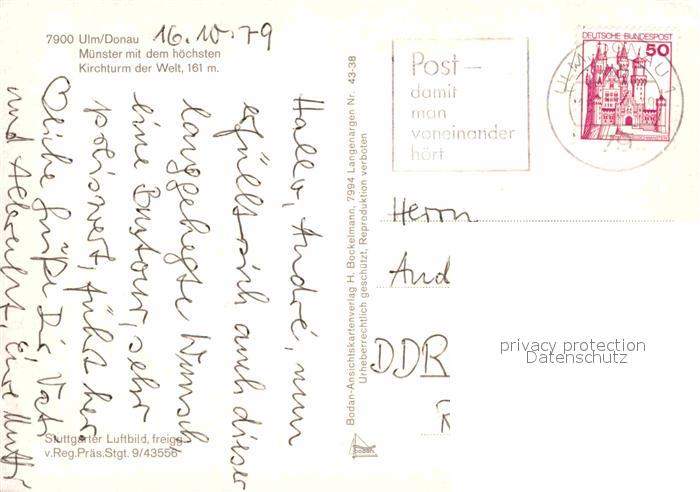 7900 Ulm/Donau 16.10.79
Münster mit dem höchsten
Kirchturm der Welt, 161 m.
Hallo, André, nun
erfüllt sich auch dieser
langgehegte Wunsch
eine Bustour, sehr
preiswert, führt her
Beliche Grüße Dir, Vati
und Albrecht, Eure Mutti
Stuttgarter Luftbild, freigg.
v.Reg.Präs.Stgt. 9/43556
Bodan-Ansichtskartenverlag H. Bockelmann, 7994 Langenargen Nr. 43-38
Urheberrechtlich geschützt, Reproduktion verboten
bodan
Post–
damit
man
voneinander
hört
ULM, DONAU 1
79
DEUTSCHE BUNDESPOST
50
NEUSCHWANSTEIN
Herrn
And
DDR
R
privacy protection
Datenschutz